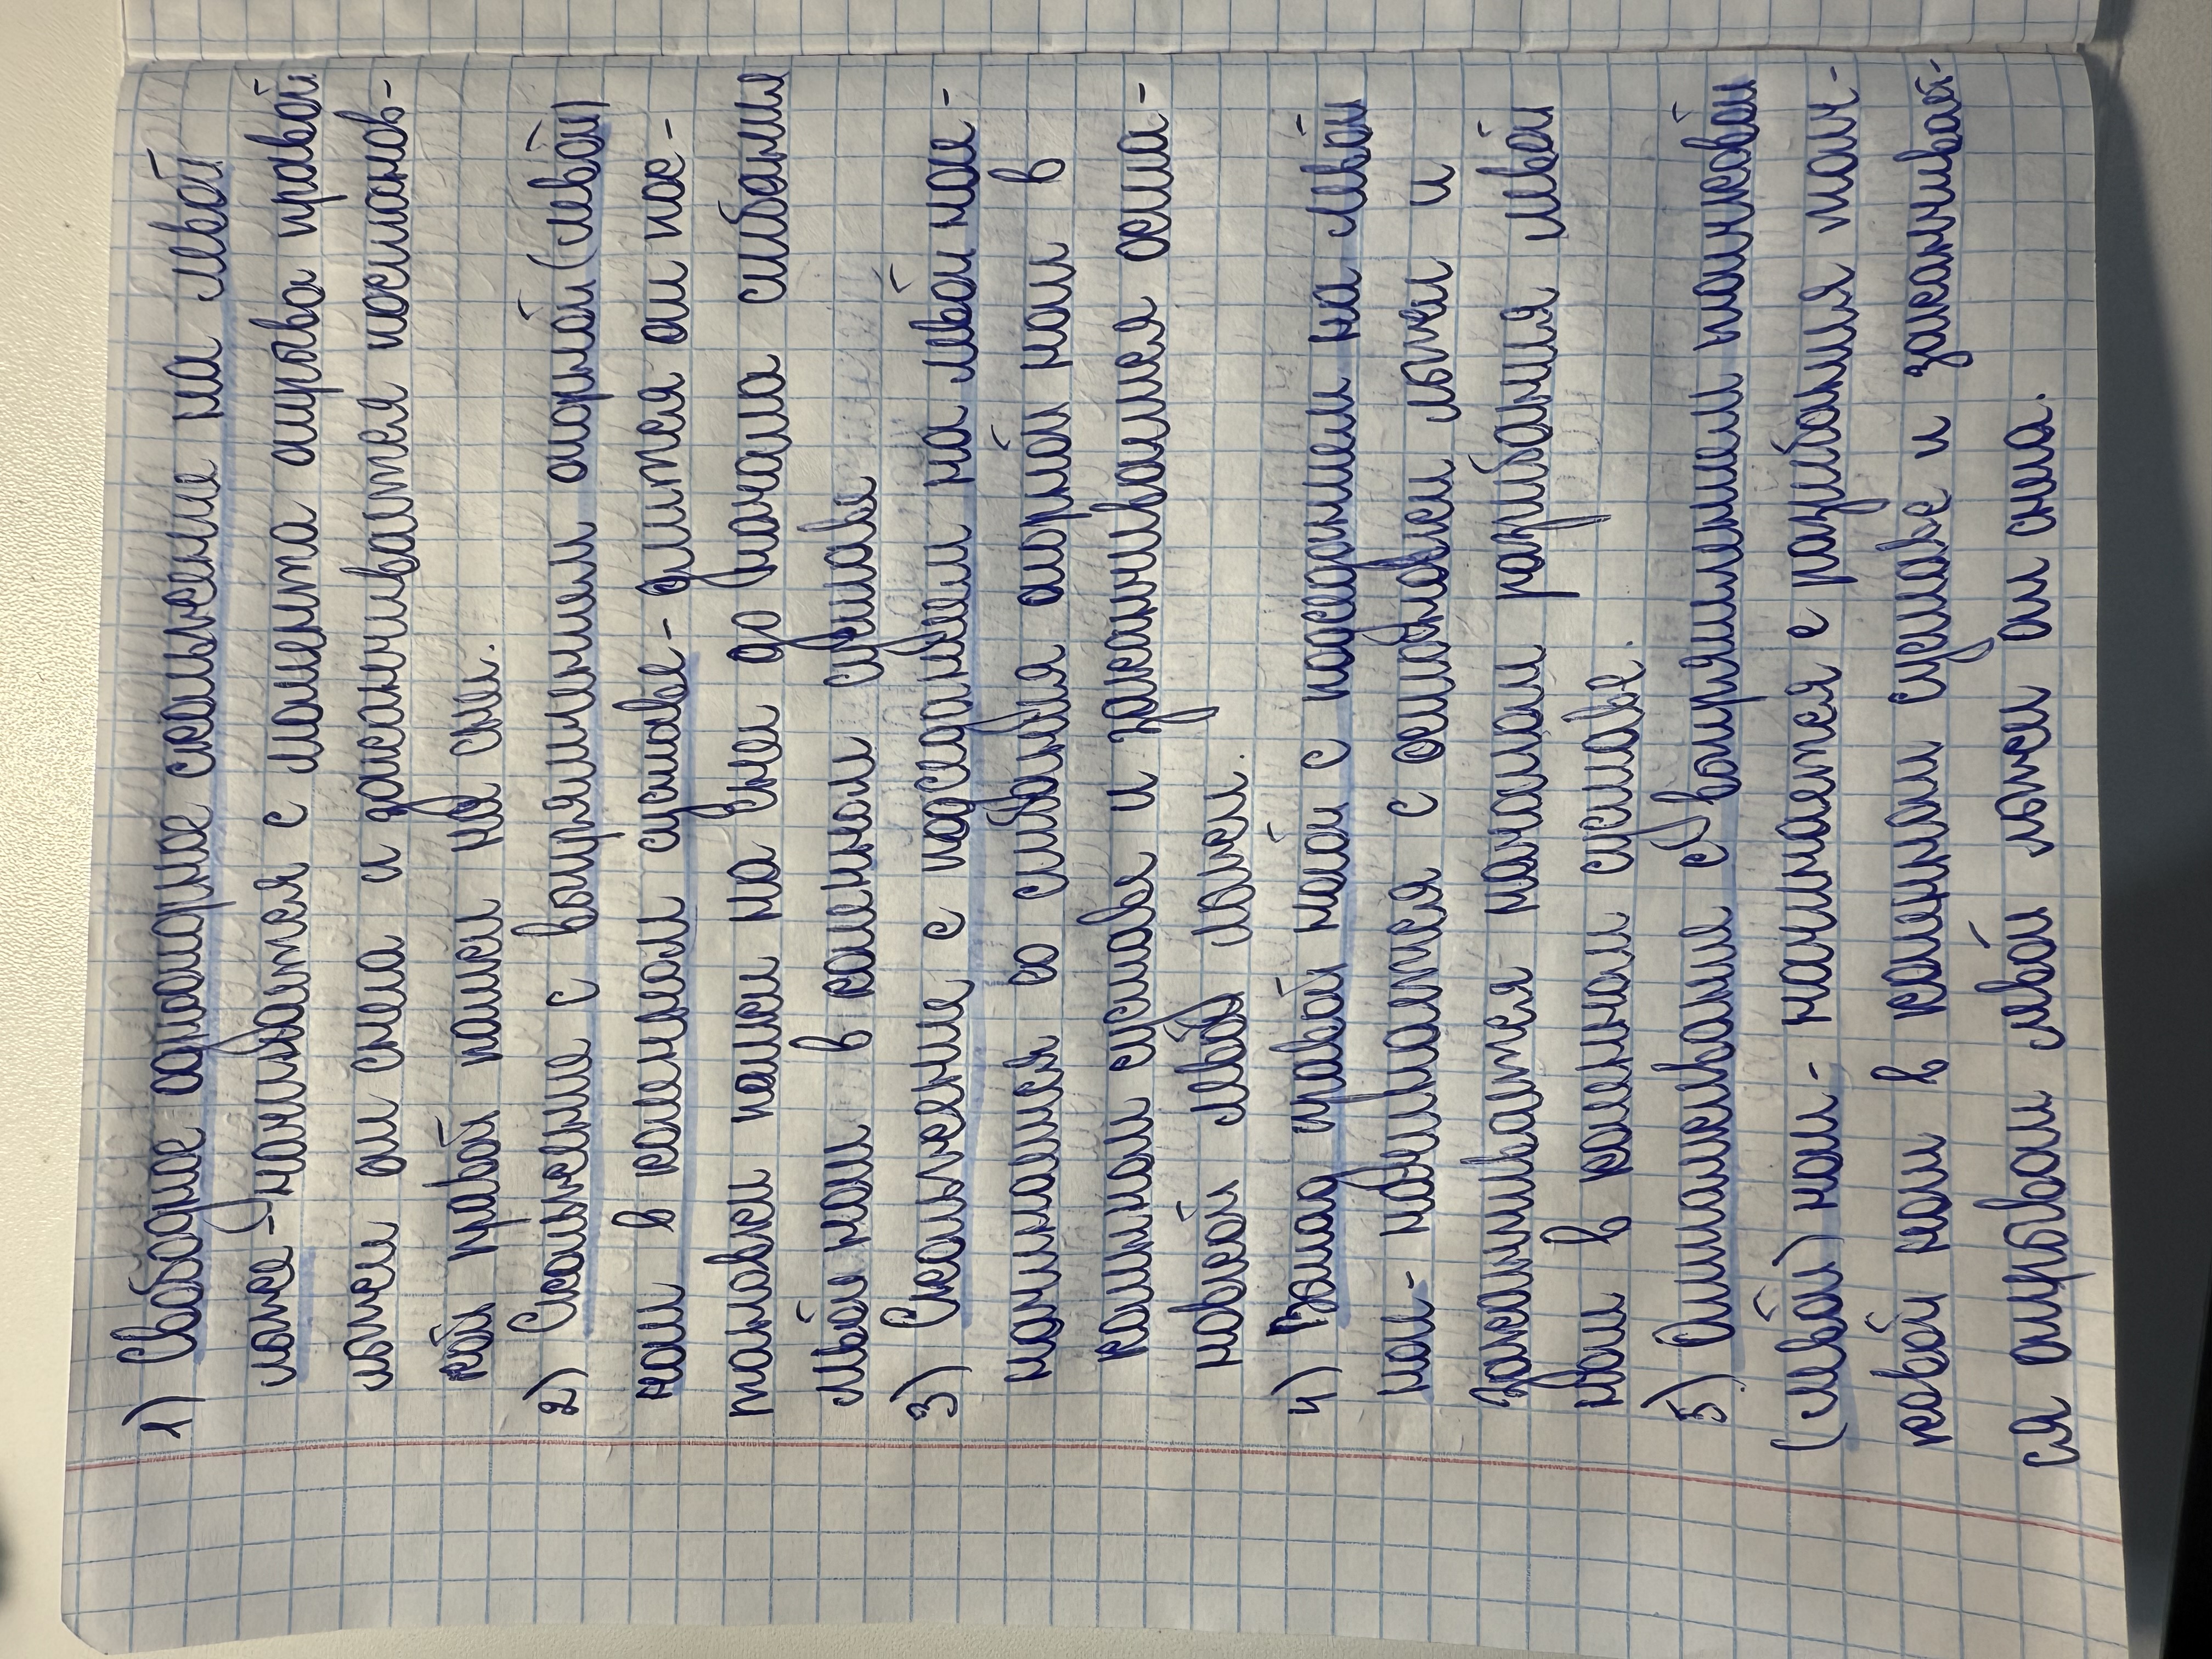 1) Свободное одноопорное скольжение на левой
лыже - начинается с момента отрыва правой
лыжи от снега и заканчивается постанов-
кой правой палки на снег.
2) Скольжение с выпрямлением опорной (левой)
ноги в коленном суставе - длится от пос-
тановки палки на снег до начала сгибания
левой ноги в коленном суставе
3) Скольжение с подседанием на левой ноге -
начинаясь со сгибания опорной ноги в
коленном суставе и заканчивается оста-
новкой левой лыжи.
4) Выпад правой ногой с подседанием на левой
ноге - начинается с остановки лыжи и
заканчивается началом разгибания левой
ноги в коленном суставе.
5) Отталкивание с выпрямлением толчковой
(левой) ноги - начинается с разгибания толч-
ковой ноги в коленном суставе и заканчивает-
ся отрывом левой лыжи от снега.